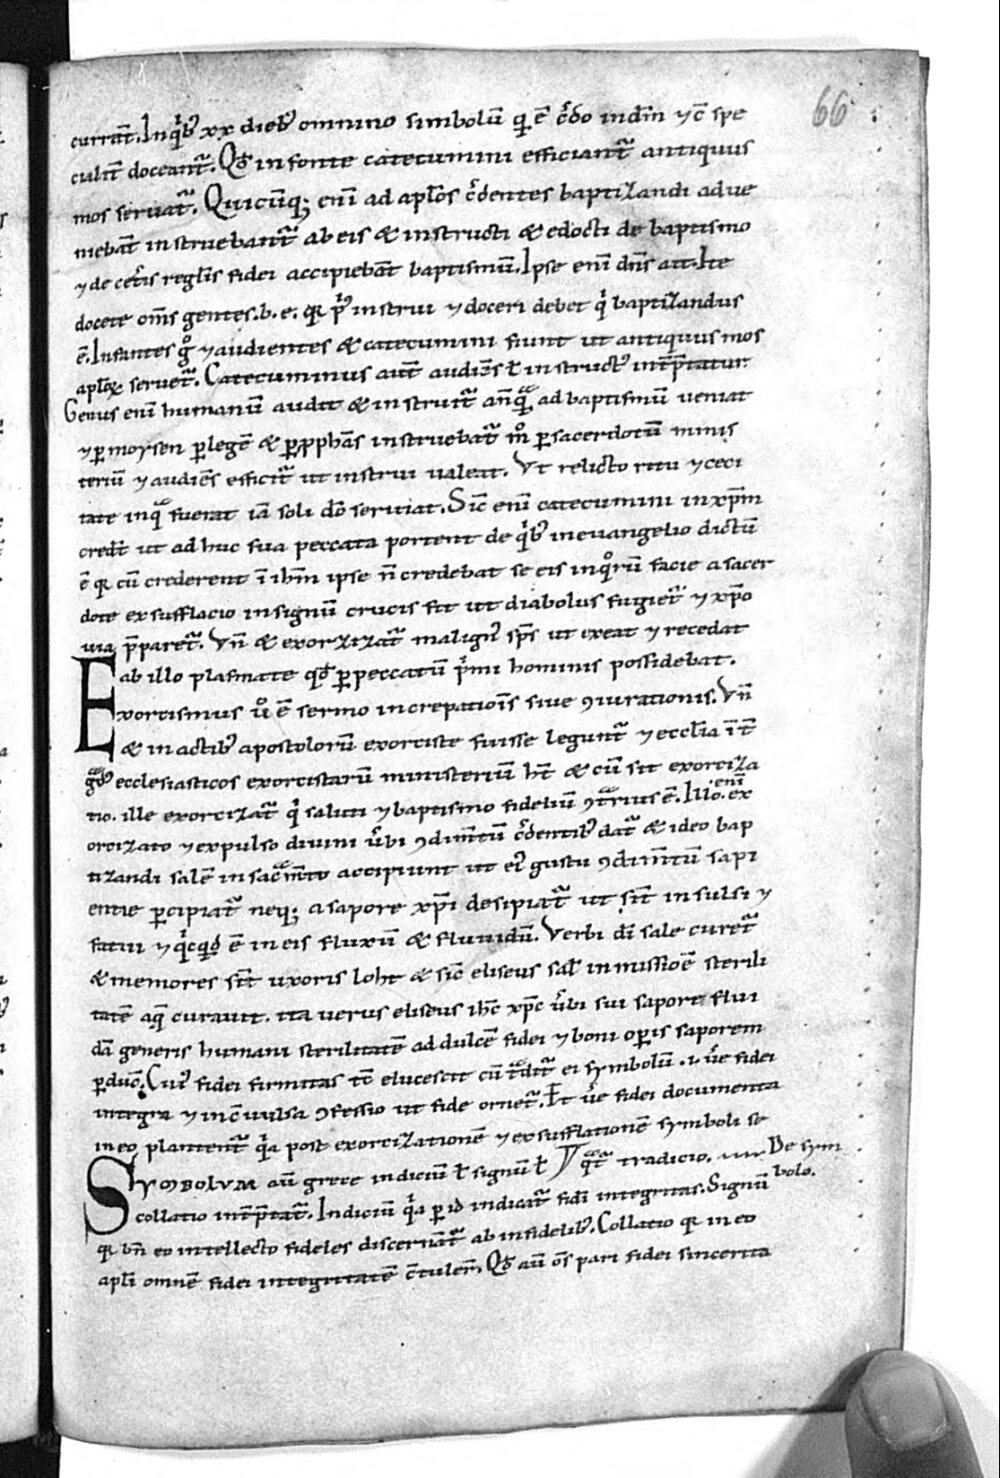 66
currat̄. In q̇b; xx dieb; omnino simbolū qi ē c̄do in dm̄ ⁊ c̄ spe
culit̄ doceant᷑. Qđ in fonte catecumini efficiant᷑ antiquus
mos seruat᷑. Quicūq; eni ad aplos c̄dentes baptizandi adue
niebāt instruebant᷑ ab eis & instructi & edocti de baptismo
⁊ de cet̄is regl̄is fidei accipiebāt baptismū. Ipse eni dn̄s ait. Ite
docete om̄s gentes. b. e. qr p̄ instrui ⁊ doceri debet q̇ baptizandus
ē. Infantes g̊ ⁊ audientes & catecumini fiunt ut antiquus mos
aplox seruet᷑. Catecuminus aut̄ audiēs ł instruct᷒ int̄p̄tatur.
Genus eni humanū audit & instruit᷑ anq̄ ad baptismū ueniat
⁊ ꝑ moysen ꝑ legē & ꝑ ꝓphas instruebat᷑ m̊ ꝑ sacerdotum minis
teriū ⁊ audiēs efficit᷑ ut instrui ualeat. Vt relicto ritu ⁊ ceci
tate in q̄ fuerat iā soli dō seruiat. Sic̄ eni catecumini in xp̄m
credt̄ ut ad huc sua peccata portent de q̇b; in euangelio dictū
ē qr cū crederent ī ihm̄ ipse n̄ credebat se eis in q̊rū facie a sacer
dote exsufflacio in signū crucis fit ut diabolus fugiet᷑ ⁊ xp̄o
uia p̄paret᷑. Vn̄ & exorzizat᷑ malign᷒ sp̄s ut exeat ⁊ recedat
ab illo plasmate qđ ꝑ peccatū p̄mi hominis possidebat.
Exorcismus ů ē sermo increpatiois siue ꝯiurationis. Vn̄
& in actib; apostolorū exorciste fuisse legunt᷑ ⁊ eccl̄ia īt̄
gđ᷒ ecclesiasticos exorcistarū ministeriū ht̄ & cū sit exorciza
tio. ille exorcizat᷑ q̇ saluti ⁊ baptismo fideliū ꝯt̄rius ē. Illo eni ex
orcizato ⁊ expulso diuini ūbi ꝯdim̄tū c̄dentib; dat᷑ & ideo bap
tizandi salē in sac̄m̄to accipiunt ut ei᷒ gustu ꝯdim̄tū sapi
entie ꝑcipiat᷑ neq; a sapore xp̄i desipiat᷑ ut sīt insulsi ⁊
fatui ⁊ q̇cqđ ē in eis fluxū & fluuidū. Verbi di sale curet᷑
& memores sīt uxoris loht & sic̄ eliseus sal̄ in missioē sterili
tatē aq̄ curauit. ita uerus eliseus ihc̄ xpc̄ ūbi sui sapore flui
dā generis humani sterilitatē ad dulcē fidei ⁊ boni oꝑis saporem
ꝑduc̄. Cui᷒ fidei firmitas tc̄ elucescit cū t̄dit᷑ ei symbolū. i. ūe fidei
integra ⁊ inꝯuulsa ꝯfessio ut fide ornet᷑. Et ūe fidei documenta
in eo plantent᷑ q̇a post exorcizationē ⁊ exsufflationē symboli se
q̄t᷑ tradicio. De sym
bolo.
Symbolum aū grece indiciū ł signū ł
collatio int̄p̄tat᷑. Indiciū q̇a ꝑ id indicat᷑ fidi integritas. Signū
qr bn̄ eo intellecto fideles discernūt᷑ ab infidelib;. Collatio qr in eo
apli omnē fidei integritatē ꝯtulerūt. Qđ aū os̄ pari fidei sincerita